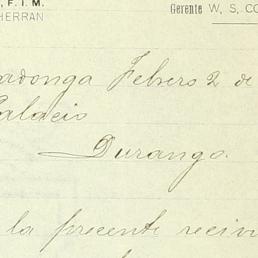 , F. I. M.
HERRAN
Gerente W. S. CO
adonga Febrero 2 de
Palacio
Durango.
la presente reciv